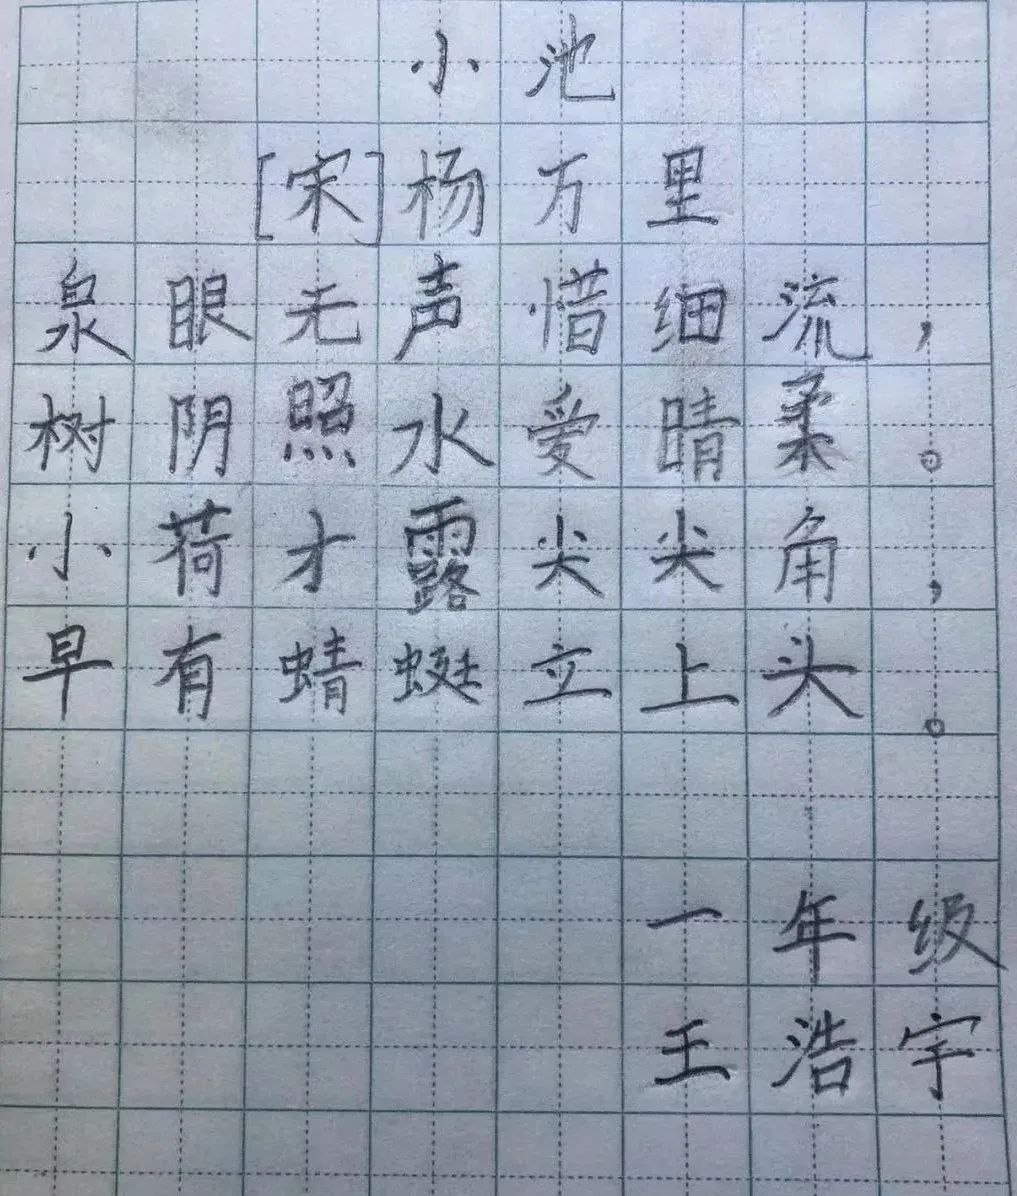 小池
[宋]杨万里
泉眼无声惜细流，
树阴照水爱晴柔。
小荷才露尖尖角，
早有蜻蜓立上头。
一年级
王浩宇